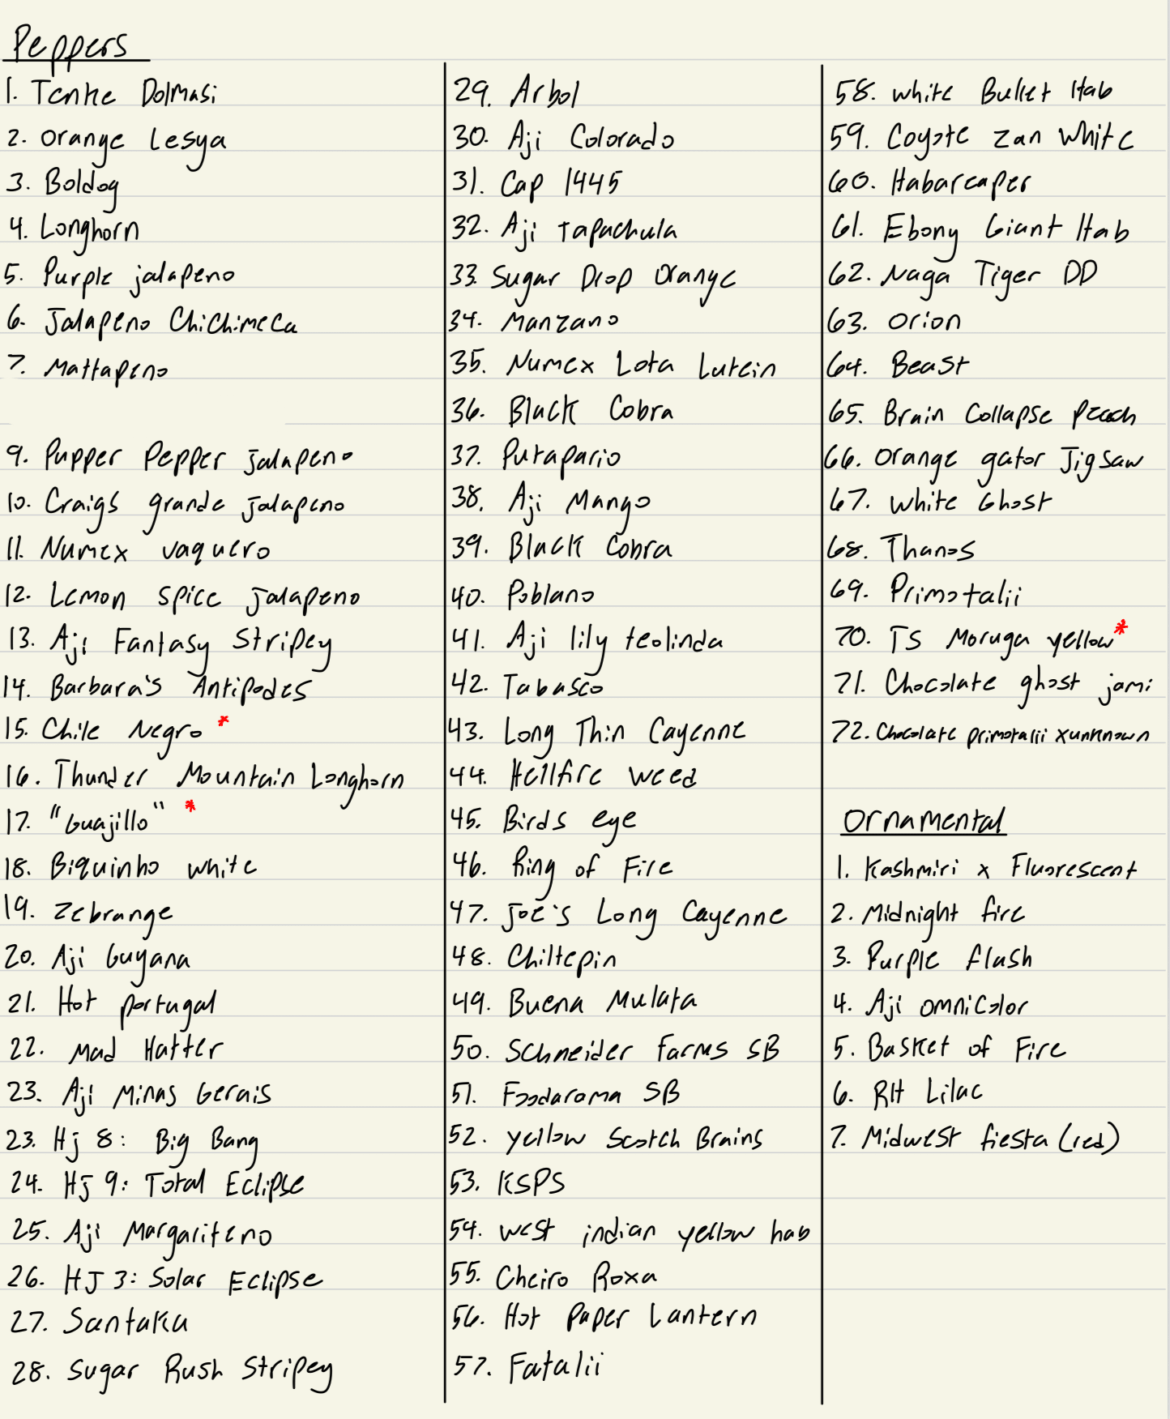 Peppers
1. Tenke Dolmasi
2. Orange Lesya
3. Boldog
4. Longhorn
5. Purple jalapeno
6. Jalapeno Chichimeca
7. Mattapeno
9. Pupper Pepper jalapeno
10. Craigs grande jalapeno
11. Numex vaquero
12. Lemon spice jalapeno
13. Aji Fantasy Stripey
14. Barbara's Antipodes
15. Chile Negro *
16. Thunder Mountain Longhorn
17. "Guajillo" *
18. Biquinho white
19. Zebrange
20. Aji Guyana
21. Hot portugal
22. Mad Hatter
23. Aji Minas Gerais
23. Hj 8: Big Bang
24. HJ 9: Total Eclipse
25. Aji Margariteno
26. HJ 3: Solar Eclipse
27. Santaka
28. Sugar Rush Stripey
29. Arbol
30. Aji Colorado
31. Cap 1445
32. Aji Tapachula
33. Sugar Drop Orange
34. Manzano
35. Numex Lota Lutein
36. Black Cobra
37. Putapario
38. Aji Mango
39. Black Cobra
40. Poblano
41. Aji lily teolinda
42. Tabasco
43. Long Thin Cayenne
44. Hellfire weed
45. Birds eye
46. Ring of Fire
47. Joe's Long Cayenne
48. Chiltepin
49. Buena Mulata
50. Schneider Farms SB
51. Foodarama SB
52. yellow Scotch Brains
53. KSPS
54. west indian yellow hab
55. Cheiro Roxa
56. Hot Paper Lantern
57. Fatalii
58. white Bullet Hab
59. Coyote Zan White
60. Habareaper
61. Ebony Giant Hab
62. Naga Tiger DD
63. Orion
64. Beast
65. Brain Collapse Peach
66. Orange gator Jigsaw
67. White Ghost
68. Thanos
69. Primotalii
70. TS Moruga yellow *
71. Chocolate ghost jami
72. Chocolate primotalii x unknown
Ornamental
1. Kashmiri x Fluorescent
2. Midnight fire
3. Purple flash
4. Aji omnicolor
5. Basket of Fire
6. RH Lilac
7. Midwest fiesta (red)